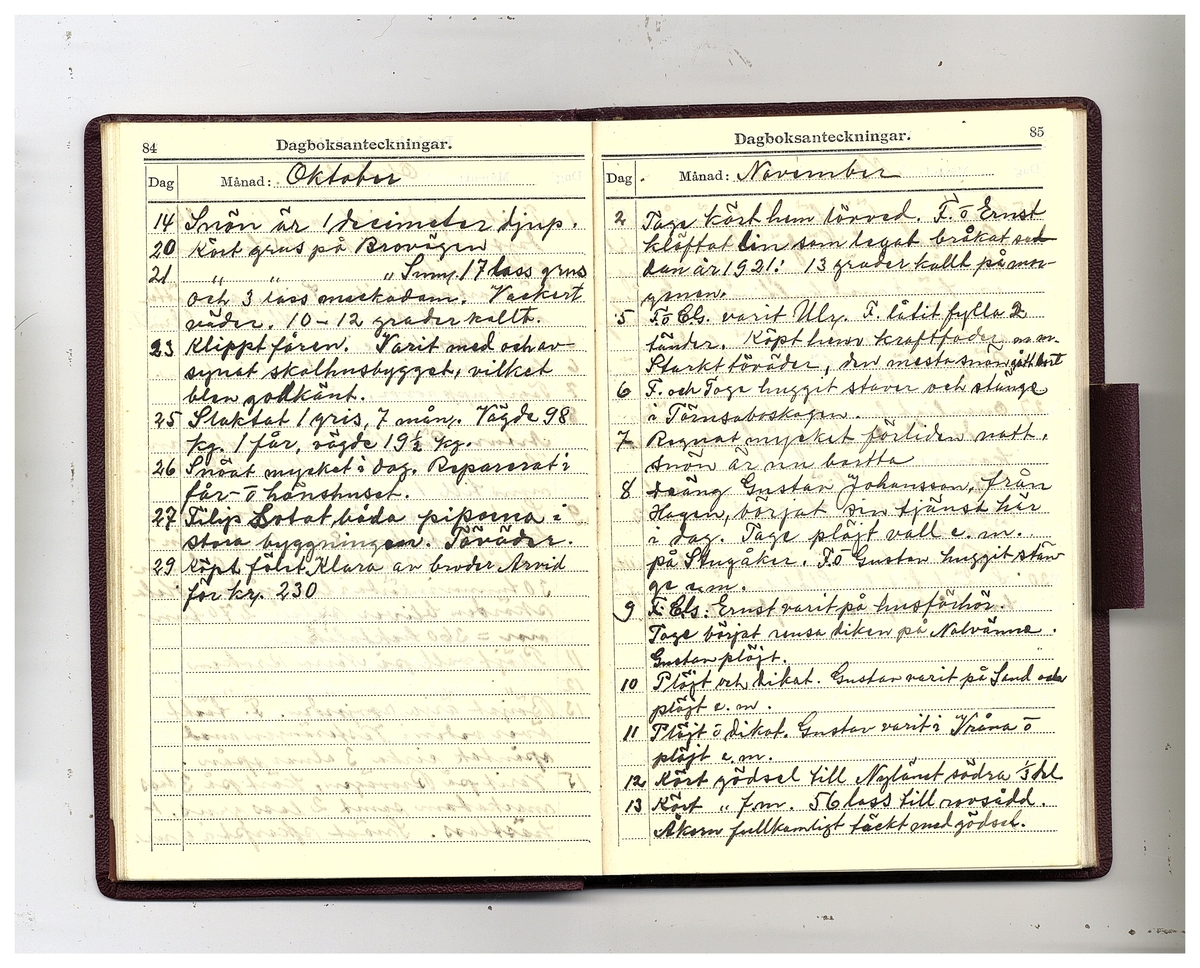 84
Dagboksanteckningar.
Dag Månad: Oktober
14 Snön är 1 decimeter djup.
20 Kört grus på Brovägen
21 „ „ „ Sum. 17 lass grus
och 3 lass mackadam. Vackert
väder. 10–12 grader kallt.
23 Klippt fåren. Varit med och av-
synat skolhusbygget, vilket
blev godkänt.
25 Slaktat 1 gris, 7 mån. Vägde 98
kg. 1 får, vägde 19½ kg.
26 Snöat mycket i dag. Reparerat i
får- o hönshuset.
27 Filip sotat båda piporna i
stora byggningen. Töväder.
29 Köpt fölet Klara av broder Arvid
för kr. 230
85
Dagboksanteckningar.
Dag Månad: November
2 Tage kört hem törved. F. o Ernst
klöftat lin som legat bråkat sed
dan år 1921! 13 grader kallt på mor-
gonen.
5 F. o Els. varit Ulr. F. låtit fylla 2
tänder. Köpt hem kraftfoder m.m.
Starkt töväder, den mesta snön gått bort
6 F. och Tage huggit staver och stänge
i Törnsaboskogen.
7 Regnat mycket förliden natt.
Snön är nu bortta
8 Dräng Gustav Johansson, från
Hagen, börjat sin tjänst här
i dag. Tage plöjt vall e.m.
på Stugåker. F. o Gustav huggit stän-
ge e.m.
9 F. Els. Ernst varit på husförhör.
Tage börjat rensa diken på Nolvänne.
Gustav plöjt.
10 Plöjt och dikat. Gustav varit på Sand och
plöjt e.m.
11 Plöjt o dikat. Gustav varit i Vråna o
plöjt e.m.
12 Kört gödsel till Nylänet södra ⅓ del
13 Kört „ f.m. 56 lass till rovsådd.
Åkern fullkomligt täckt med gödsel.